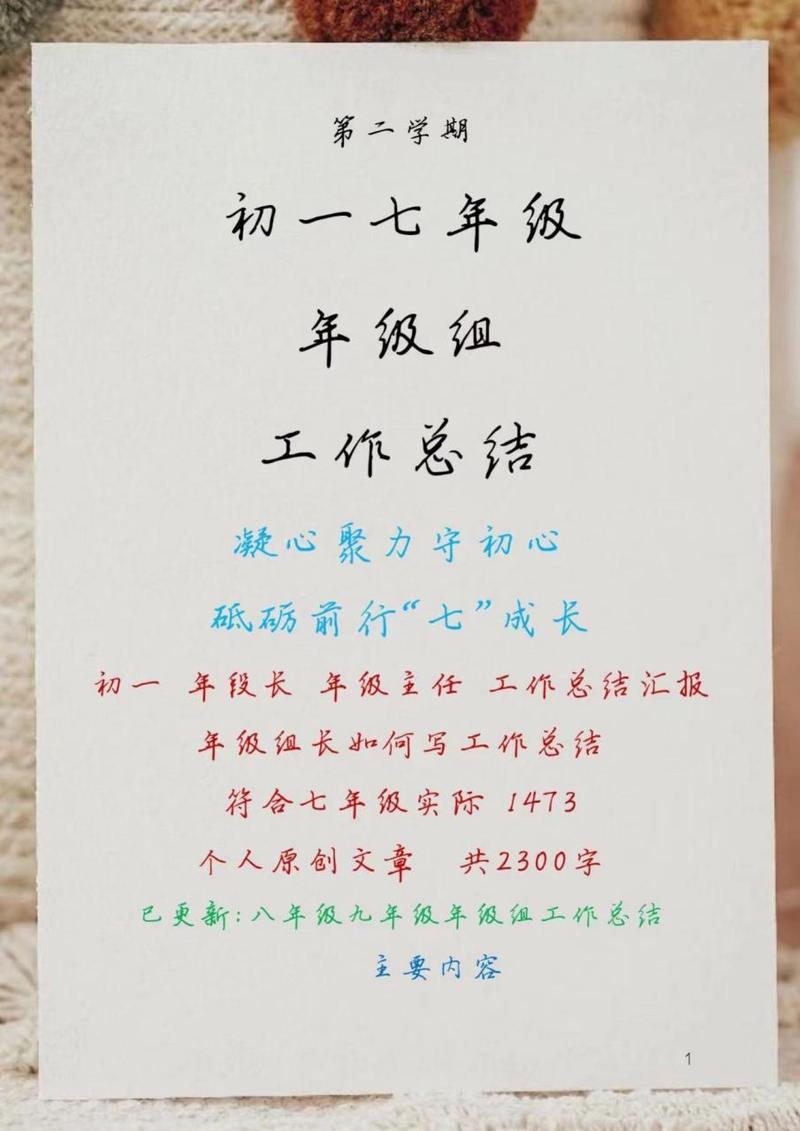 第二学期
初一七年级
年级组
工作总结
凝心聚力守初心
砥砺前行“七”成长
初一 年段长 年级主任 工作总结汇报
年级组长如何写工作总结
符合七年级实际 1473
个人原创文章 共2300字
已更新:八年级九年级年级组工作总结
主要内容
1